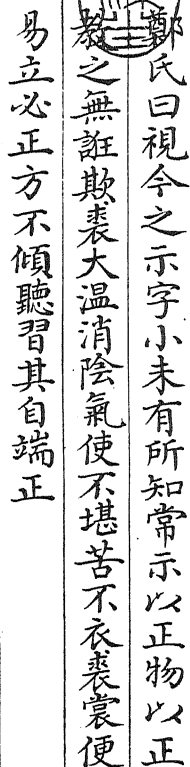 鄭氏曰視今之示字小未有所知常示以正物以正
教之無誑欺裘大温消陰氣使不堪苦不衣裘裳便
易立必正方不傾聽習其自端正